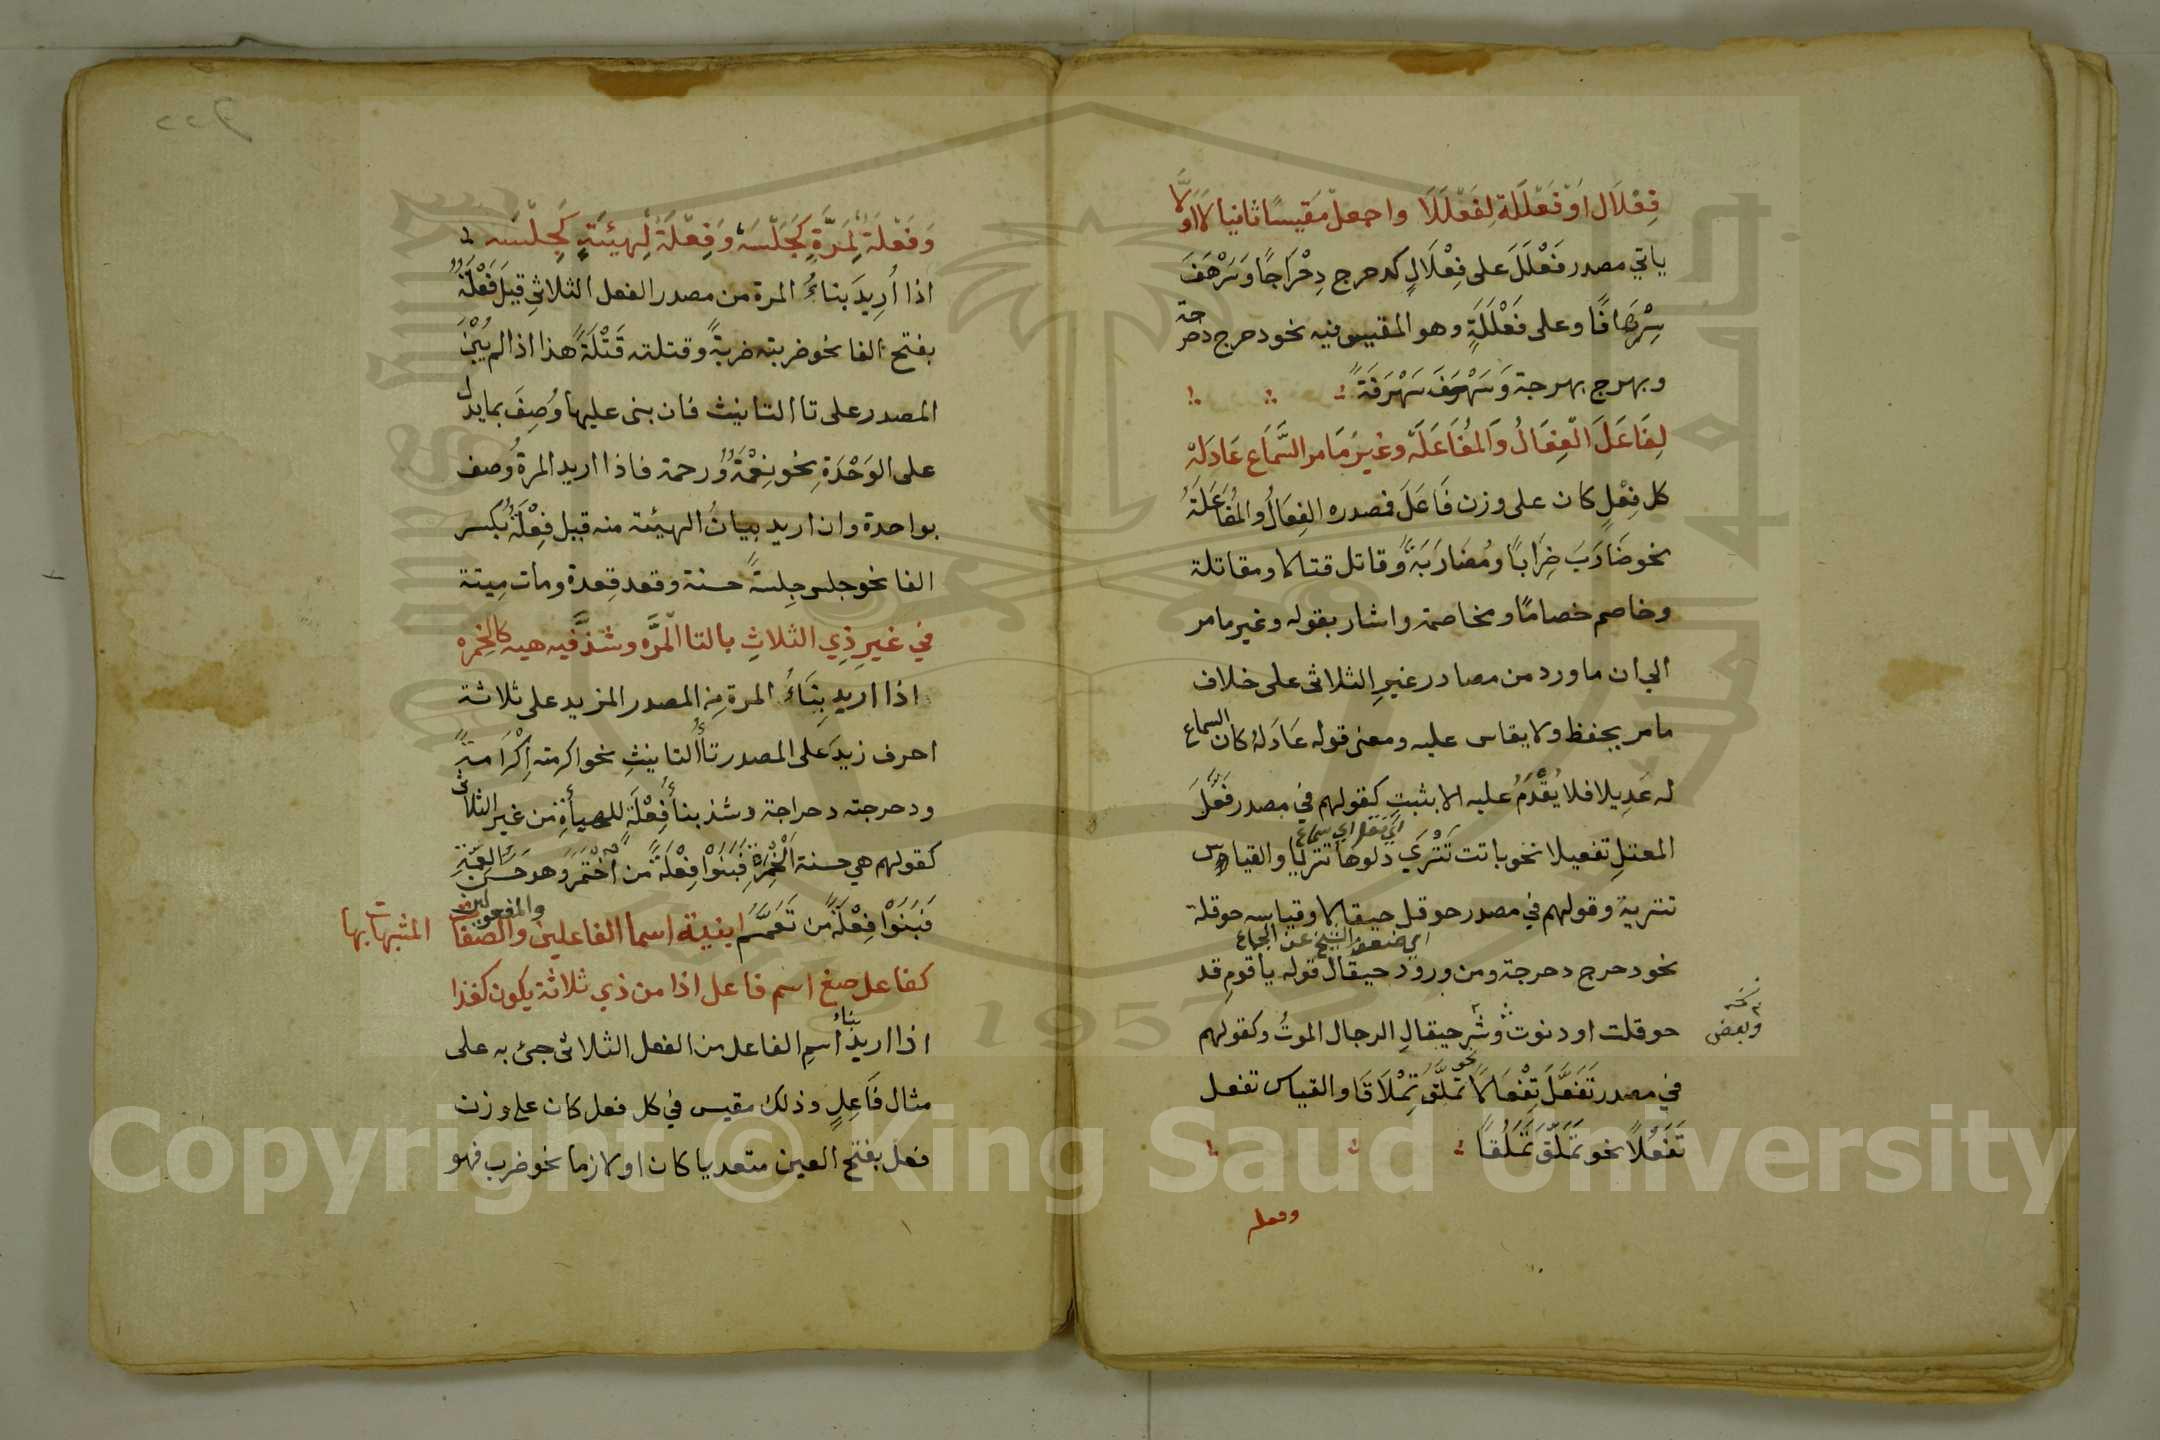 فِعْلَال اَوْ فَعْلَلَة لِفَعْلَلَا واجعل مَقِيسًا ثانيا لا اوَّلَا
ياتي مصدر فَعْلَلَ على فِعْلَالٍ كدحرج دِحْرَاجًا وَسَرْهَفَ
سِرْهَافًا وعلى فَعْلَلَةٍ وهو المقيس فيه نحو دحرج دحرجة
وبهرج بهرجة وَسَرْهَفَ سَرْهَفَةً
لِفَاعَلَ الْفِعَالُ وَالمُفَاعَلَهْ وغيرُ مَا مر السَّمَاع عَادَلَهْ
كل فِعْلٍ كان على وزن فَاعَلَ فمصدره الفِعَالُ والمُفَاعَلَةُ
نحو ضَارَبَ ضِرَابًا ومُضَارَبَةً وقاتل قتالا ومقاتلة
وخاصم خصامًا ومخاصمة واشار بقوله وغير ما مر
الى ان ما ورد من مصادر غيرِ الثلاثى على خلاف
ما مر يحفظ ولا يقاس عليه ومعنى قوله عَادَلَهُ كان السماع
له عَدِيلا فلا يُقْدَمُ عليه الا بثبتٍ كقولهم في مصدر فَعَّلَ
اي بنقل اي سماع
المعتلِ تفعيلا نحو باتت تُنَزِّي دلوها تنزيًا والقياس
تنزية وقولهم في مصدر حوقل حيقالا وقياسه حوقلة
نحو دحرج دحرجة ومن ورود حيقال قوله يا قومِ قد
حوقلت او دنوت وشر حيقالِ الرجال الموتُ وكقولهم
وبعض
في مصدر تَفَعَّلَ تِفْعَالًا نحو تملَّقَ تِمْلَاقًا والقياس تفعل
تَفَعُّلًا نحو تَمَلَّقَ تَمَلُّقًا
وفعلة
وَفَعْلَةٌ لِمَرَّةٍ كَجَلْسَهْ وَفِعْلَةٌ لِهيئةٍ كَجِلْسَهْ
اذا اُرِيدَ بناءُ المرة من مصدر الفعل الثلاثىِ قيلَ فَعْلَةٌ
بفتح الفا نحو ضربته ضربةً وقتلته قَتْلَةً هذا اذا لم يُبْنَ
المصدر على تا التانيث فان بنى عليها وُصِفَ بما يدل
على الوَحْدَةِ نحو نِعْمَةٌ ورحمة فاذا اريد المرةُ وُصف
بواحدة وان اريد بيانُ الهيئة منه قيل فِعْلَةٌ بكسر
الفا نحو جلس جِلسةً حسنة وقعد قِعدة ومات مِيتة
في غيرِ ذِي الثلاثِ بالتا الْمَرَّه وشذَّ فيه هيه كالخِمره
اذا اريد بِنَاءُ المرة من المصدر المزيد على ثلاثة
احرف زيدَ على المصدر تاءُ التانيثِ نحو اكرمته اِكْرَامَةً
ودحرجته دحراجة وشذ بناءُ فِعْلَةٍ للهيأةِ من غير الثلاثى
كقولهم هي حسنة الْخِمْرَةِ فَبَنَوْا فِعْلَةً من اخْتَمَرَ وهو حَسَنُ العِمَّةِ
فَبَنَوْا فِعْلَةً من تَعَمَّمَ ابنية اسما الفاعلين والمفعولين والصفات المشبهات بها
كفاعل صغ اسم فاعل اذا من ذي ثلاثة يكون كغذا
اذا اريد بناء اسمِ الفاعل من الفعل الثلاثى جىء به على
مثال فَاعِلٍ وذلك مقيس في كل فعل كان على وزن
فعل بفتح العين متعديا كان او لازما نحو ضرب فهو
1957
Copyright © King Saud University